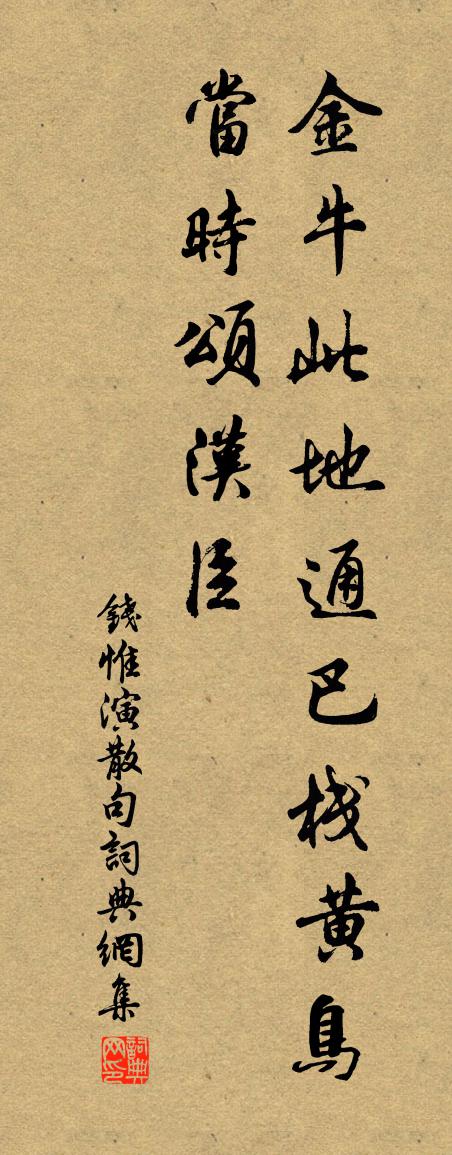 金牛此地通巴棧黄鳥
當時頌漢臣
錢惟演散句詞典網集
詞典网印